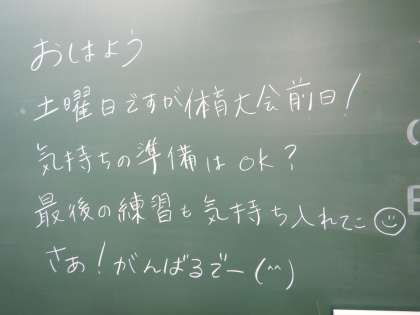 おはよう
土曜日ですが体育大会前日!
気持ちの準備はok?
最後の練習も気持ち入れてこ☺
さぁ!がんばるでー(^^)